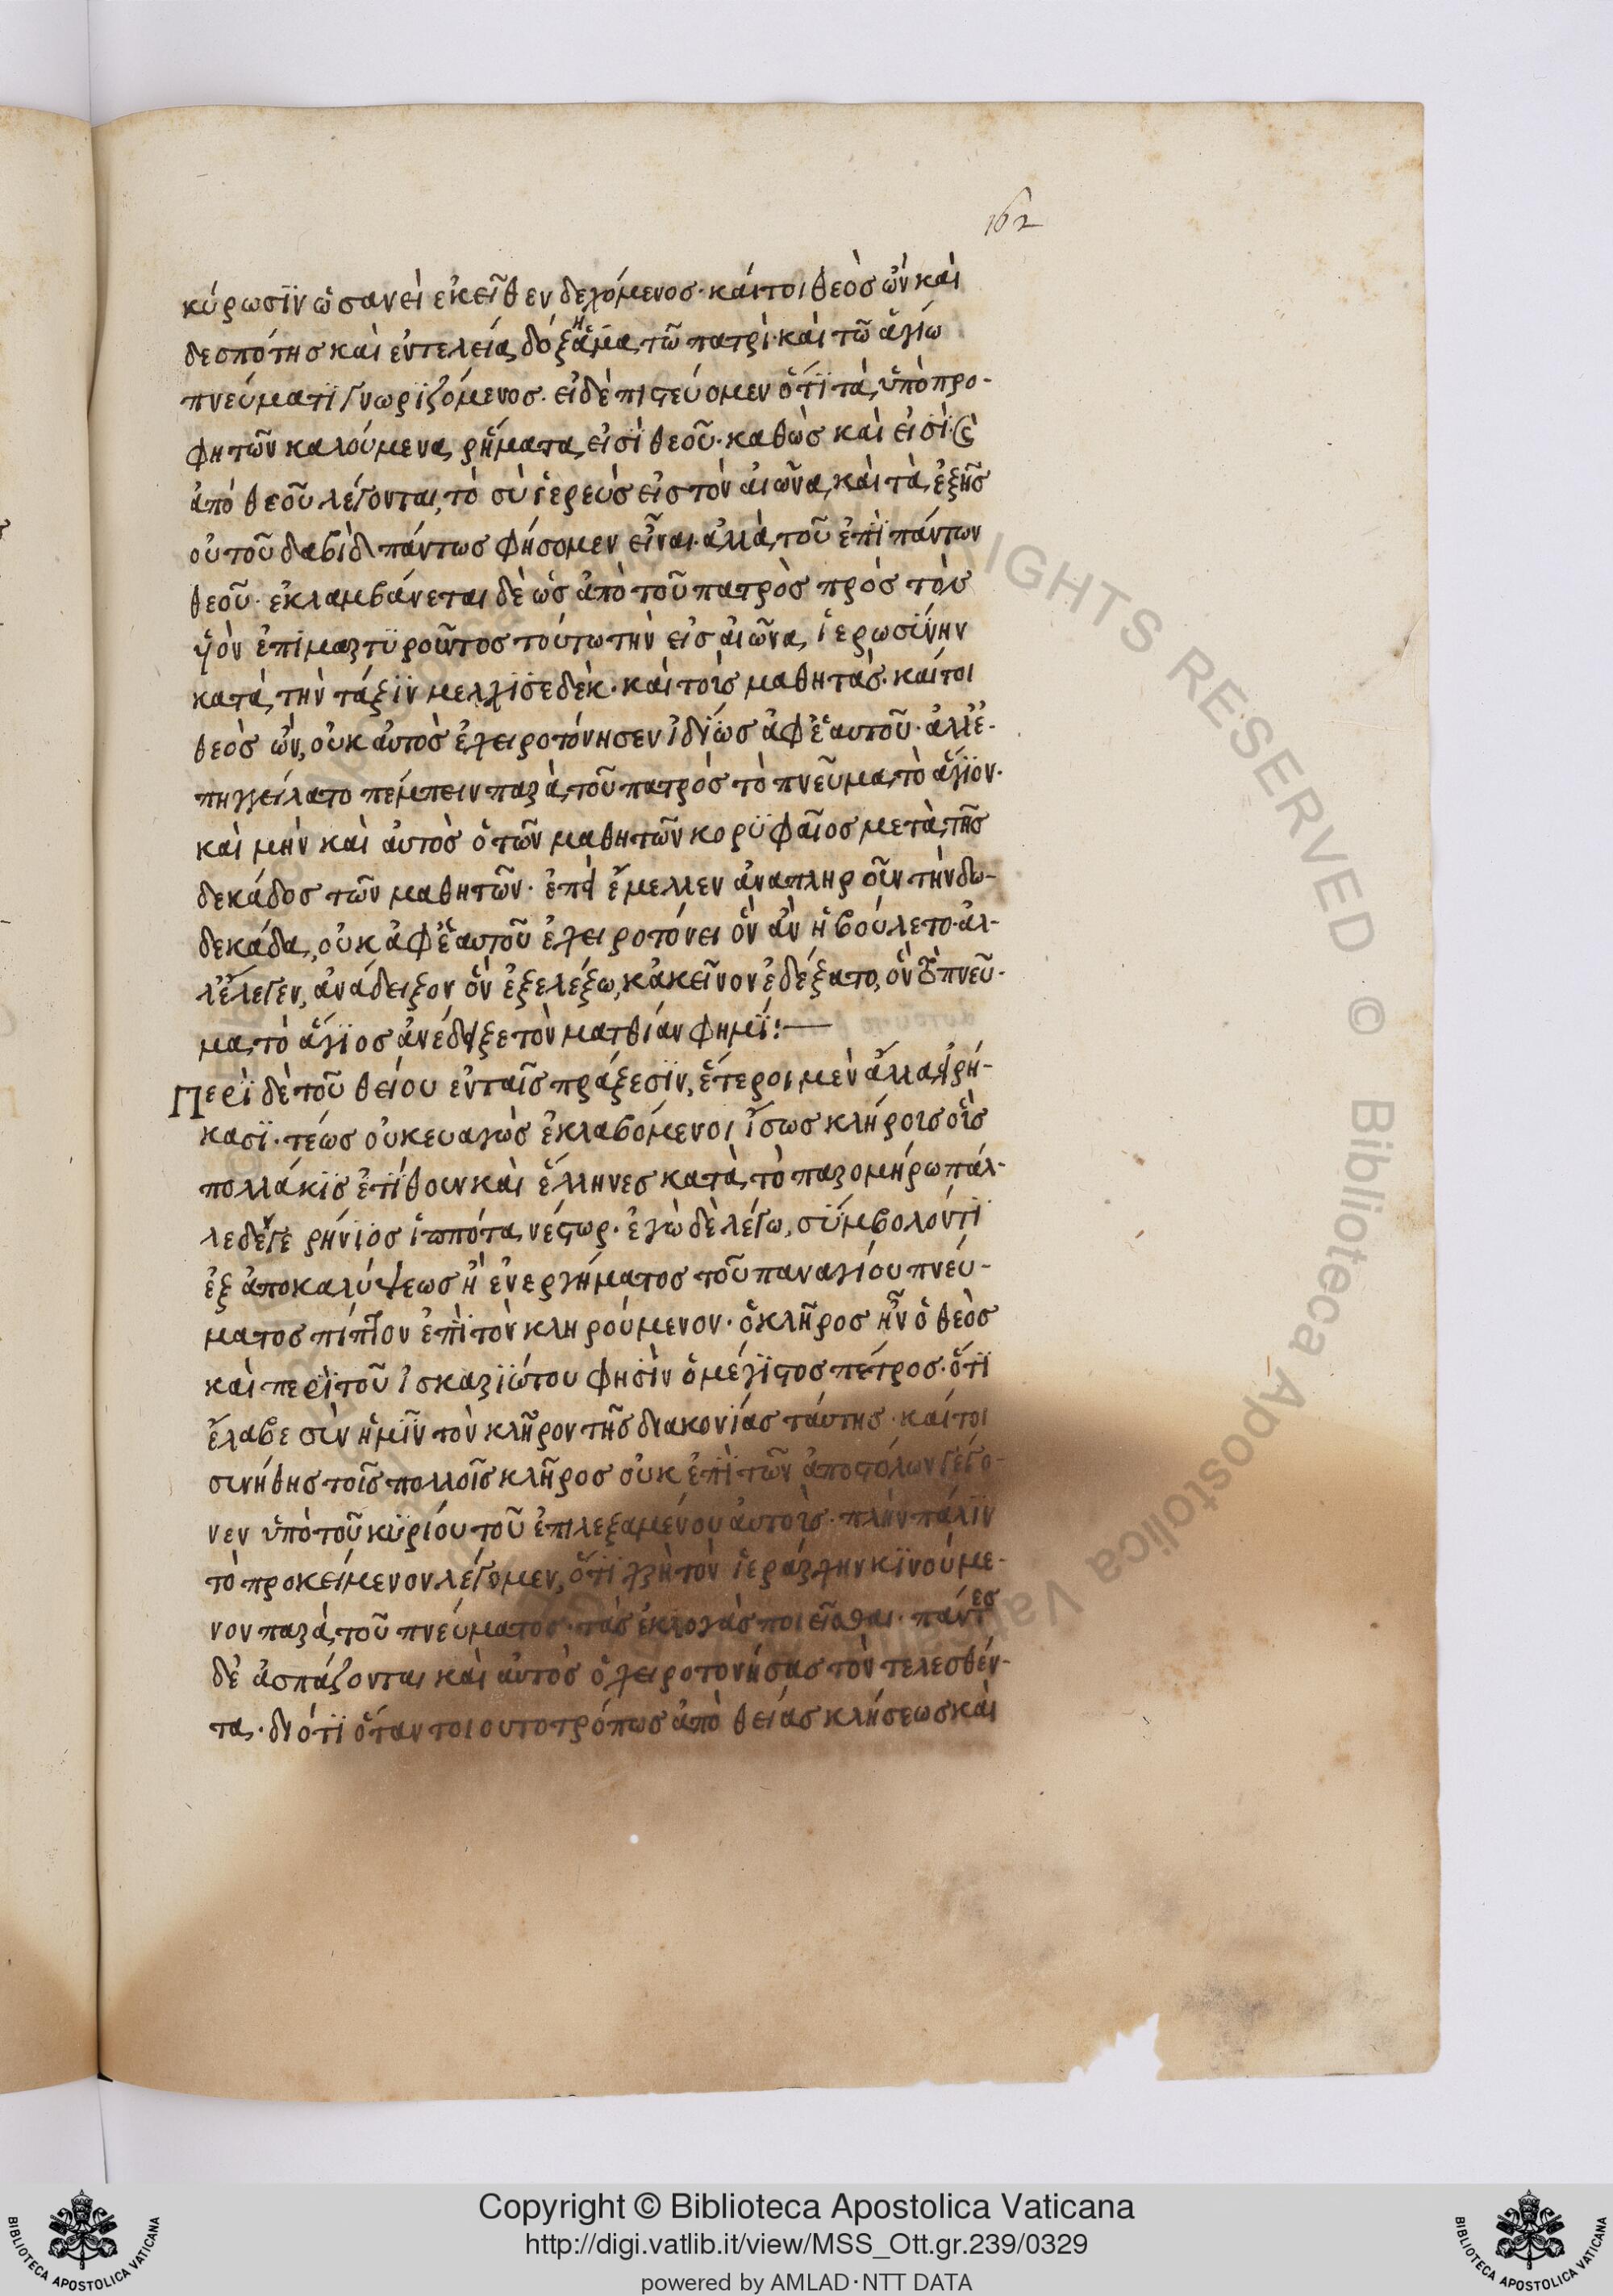 162
κύρωσϊν ὡσανεὶ ἐκεῖθεν δεχόμενος· καίτοι θεὸς ὢν καὶ
δεσπότης καὶ ἐν τελεία δόξη ἅμα τῶ πατρὶ· καὶ τῶ ἁγίω
πνεύματϊ γνωρϊζόμενος. εἰ δὲ πιστεύομεν ὅτϊ τὰ ὑπὸ προ-
φητῶν καλούμενα ῥήματα, εἰσὶ θεοῦ· καθὼς καὶ εἰσὶ· καὶ
ἀπὸ θεοῦ λέγονται, τὸ σὺ ἱερεὺς εἰς τὸν αἰῶνα, καὶ τὰ ἑξῆς
οὐ τοῦ δαβὶδ πάντως φήσομεν εἶναι· ἀλλὰ τοῦ ἐπὶ πάντων
θεοῦ· ἐκλαμβάνεται δὲ ὡς ἀπὸ τοῦ πατρὸς πρὸς τὸν
υἱὸν ἐπιμαρτϋροῦντος τούτω τὴν εἰς αἰῶνα, ἱερωσϋνην
κατὰ τὴν τάξϊν μελχϊσεδὲκ· καὶ τοὺς μαθητὰς· καίτοι
θεὸς ὢν, οὐκ αὐτὸς ἐχειροτόνησεν ἰδίως ἀφ' ἑαυτοῦ· ἀλλ' ἐ-
πηγγείλατο πέμπειν παρὰ τοῦ πατρὸς τὸ πνεῦμα τὸ ἅγϊον·
καὶ μὴν καὶ αὐτὸς ὁ τῶν μαθητῶν κορϋφαῖος μετὰ τῆς
δεκάδος τῶν μαθητῶν· ἐπεὶ ἔμελλεν ἀναπληροῦν τὴν δω-
δεκάδα, οὐκ ἀφ' ἑαυτοῦ ἐχειροτόνει ὃν ἂν ἠβούλετο· ἀλ-
λ' ἔλεγεν, ἀνάδειξον ὃν ἐξελέξω, κἀκεῖνον ἐδέξατο, ὃν τὸ πνεῦ-
μα τὸ ἅγϊος ἀνέδειξε τὸν ματθίαν φημϊ:—
Περὶ δὲ τοῦ θείου ἐν ταῖς πράξεσϊν, ἕτεροι μὲν ἄλλα εἰρή-
κασϊ· τέως οὐκ ευαγὼς ἐκλαβόμενοι ἴσως κλήροις οἷς
πολλάκϊς ἐτίθουν καὶ ἕλληνες κατὰ τὸ παρ ομήρω πάλ-
λε δὲ γε ρήνϊος ἱππότα νέστωρ· ἐγὼ δὲ λέγω, σϋμβολόν τϊ
ἐξ ἀποκαλύψεως ἢ ἐνεργήματος τοῦ παναγίου πνεύ-
ματος πίπτον ἐπὶ τὸν κληρούμενον· ὁ κλῆρος ἦν ὁ θεὸς
καὶ περὶ τοῦ ἰσκαρϊώτου φησὶν ὁ μέγϊστος πέτρος· ὅτϊ
ἔλαβε σὺν ἡμῖν τὸν κλῆρον τῆς διακονίας ταύτης· καίτοι
συνήθης τοῖς πολλοῖς κλῆρος οὐκ ἐπὶ τῶν ἀποστόλων γέγο-
νεν ὑπὸ τοῦ κϋρίου τοῦ ἐπιλεξαμένου αὐτοὺς· πλὴν πάλϊν
τὸ προκείμενον λέγομεν, ὅτϊ χρὴ τὸν ἱεράρχην κϊνούμε-
νον παρὰ τοῦ πνεύματος· τὰς ἐκλογὰς ποιεῖσθαι· πάντες
δὲ ἀσπάζονται καὶ αὐτὸς ὁ χειροτονήσας τὸν τελεσθέν-
τα· διότϊ ὅταν τοιουτοτρόπως ἀπὸ θείας κλήσεως καὶ
ALL RIGHTS RESERVED © Biblioteca Apostolica Vaticana
BIBLIOTECA APOSTOLICA VATICANA
Copyright © Biblioteca Apostolica Vaticana
http://digi.vatlib.it/view/MSS_Ott.gr.239/0329
powered by AMLAD·NTT DATA
BIBLIOTECA APOSTOLICA VATICANA